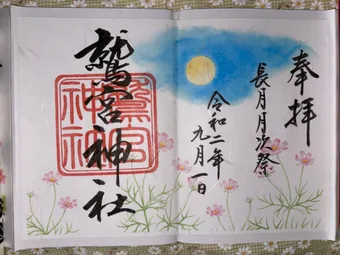 奉拝
長月月次祭
令和二年
九月一日
鷲宮神社
鷲宮神社